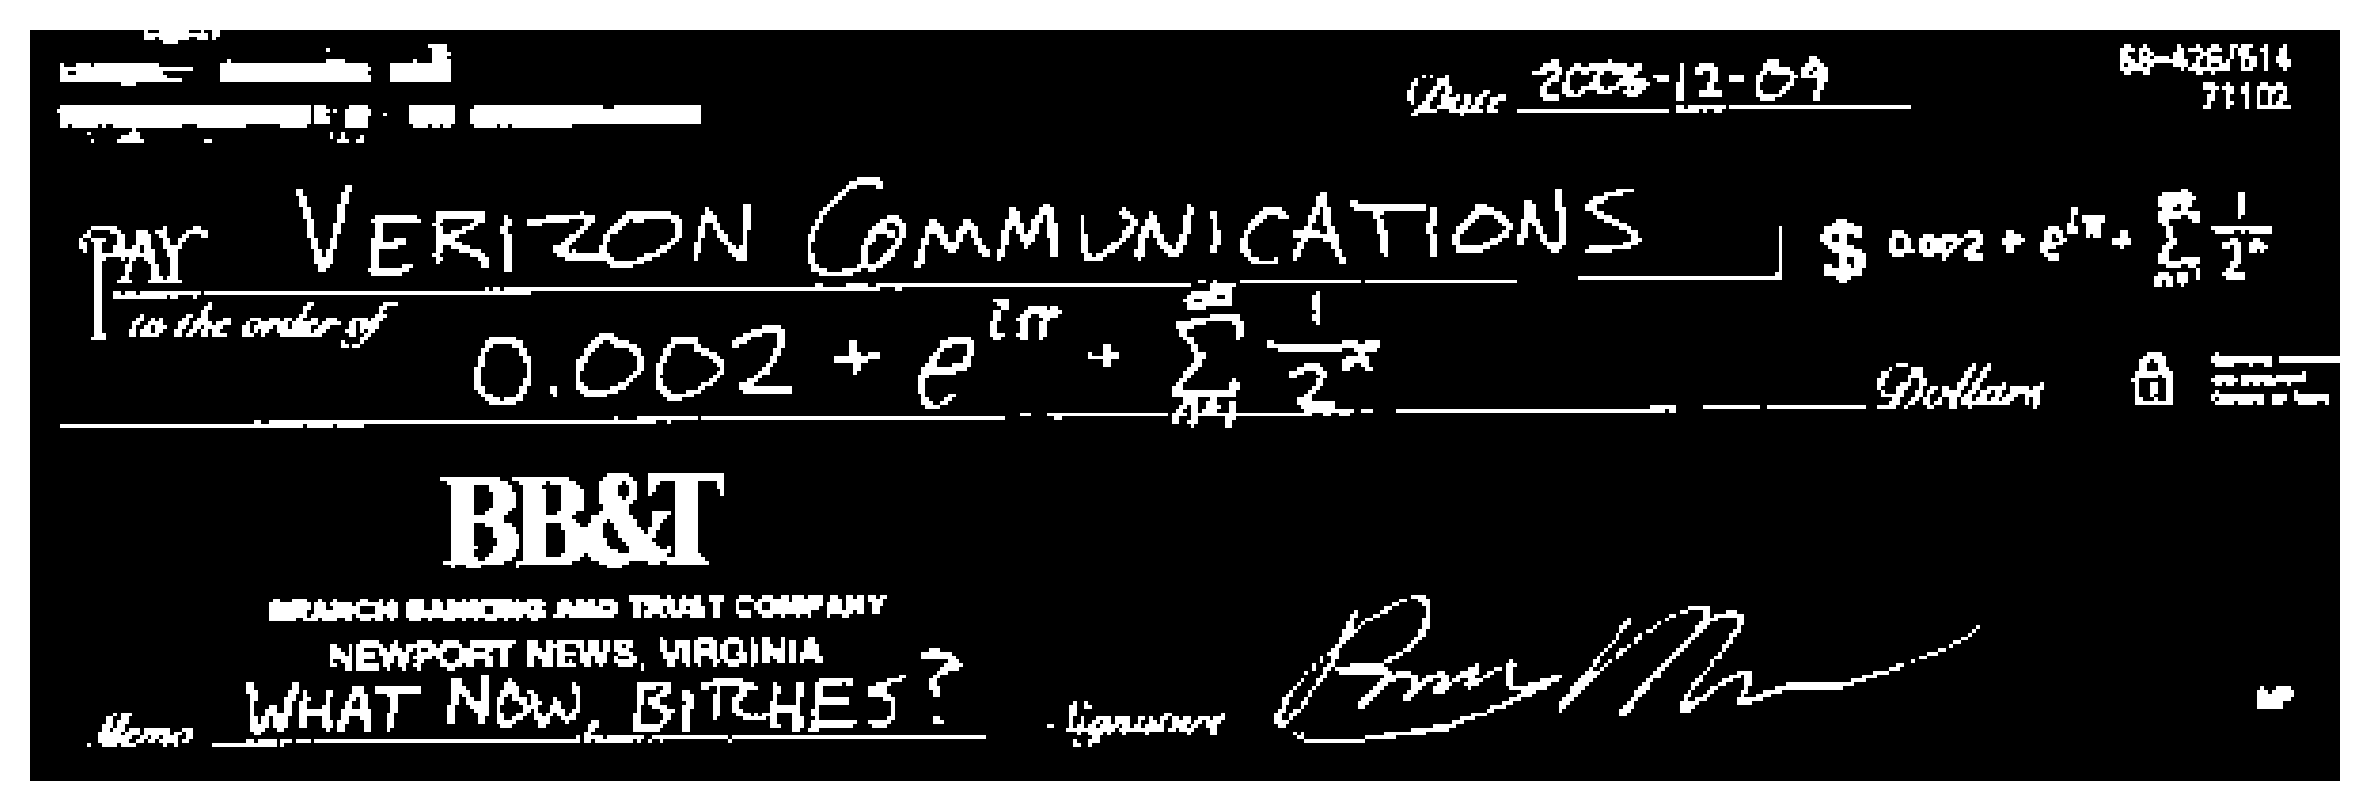 Date 2006-12-09
68-426/514
71102
PAY VERIZON COMMUNICATIONS $ 0.002 + e^{iπ} + ∑_{n=1}^{∞} 1/2^n
to the order of
0.002 + e^{iπ} + ∑_{n=1}^{∞} 1/2^n Dollars
BB&T
BRANCH BANKING AND TRUST COMPANY
NEWPORT NEWS, VIRGINIA
Memo WHAT NOW, BITCHES? Signature
MP